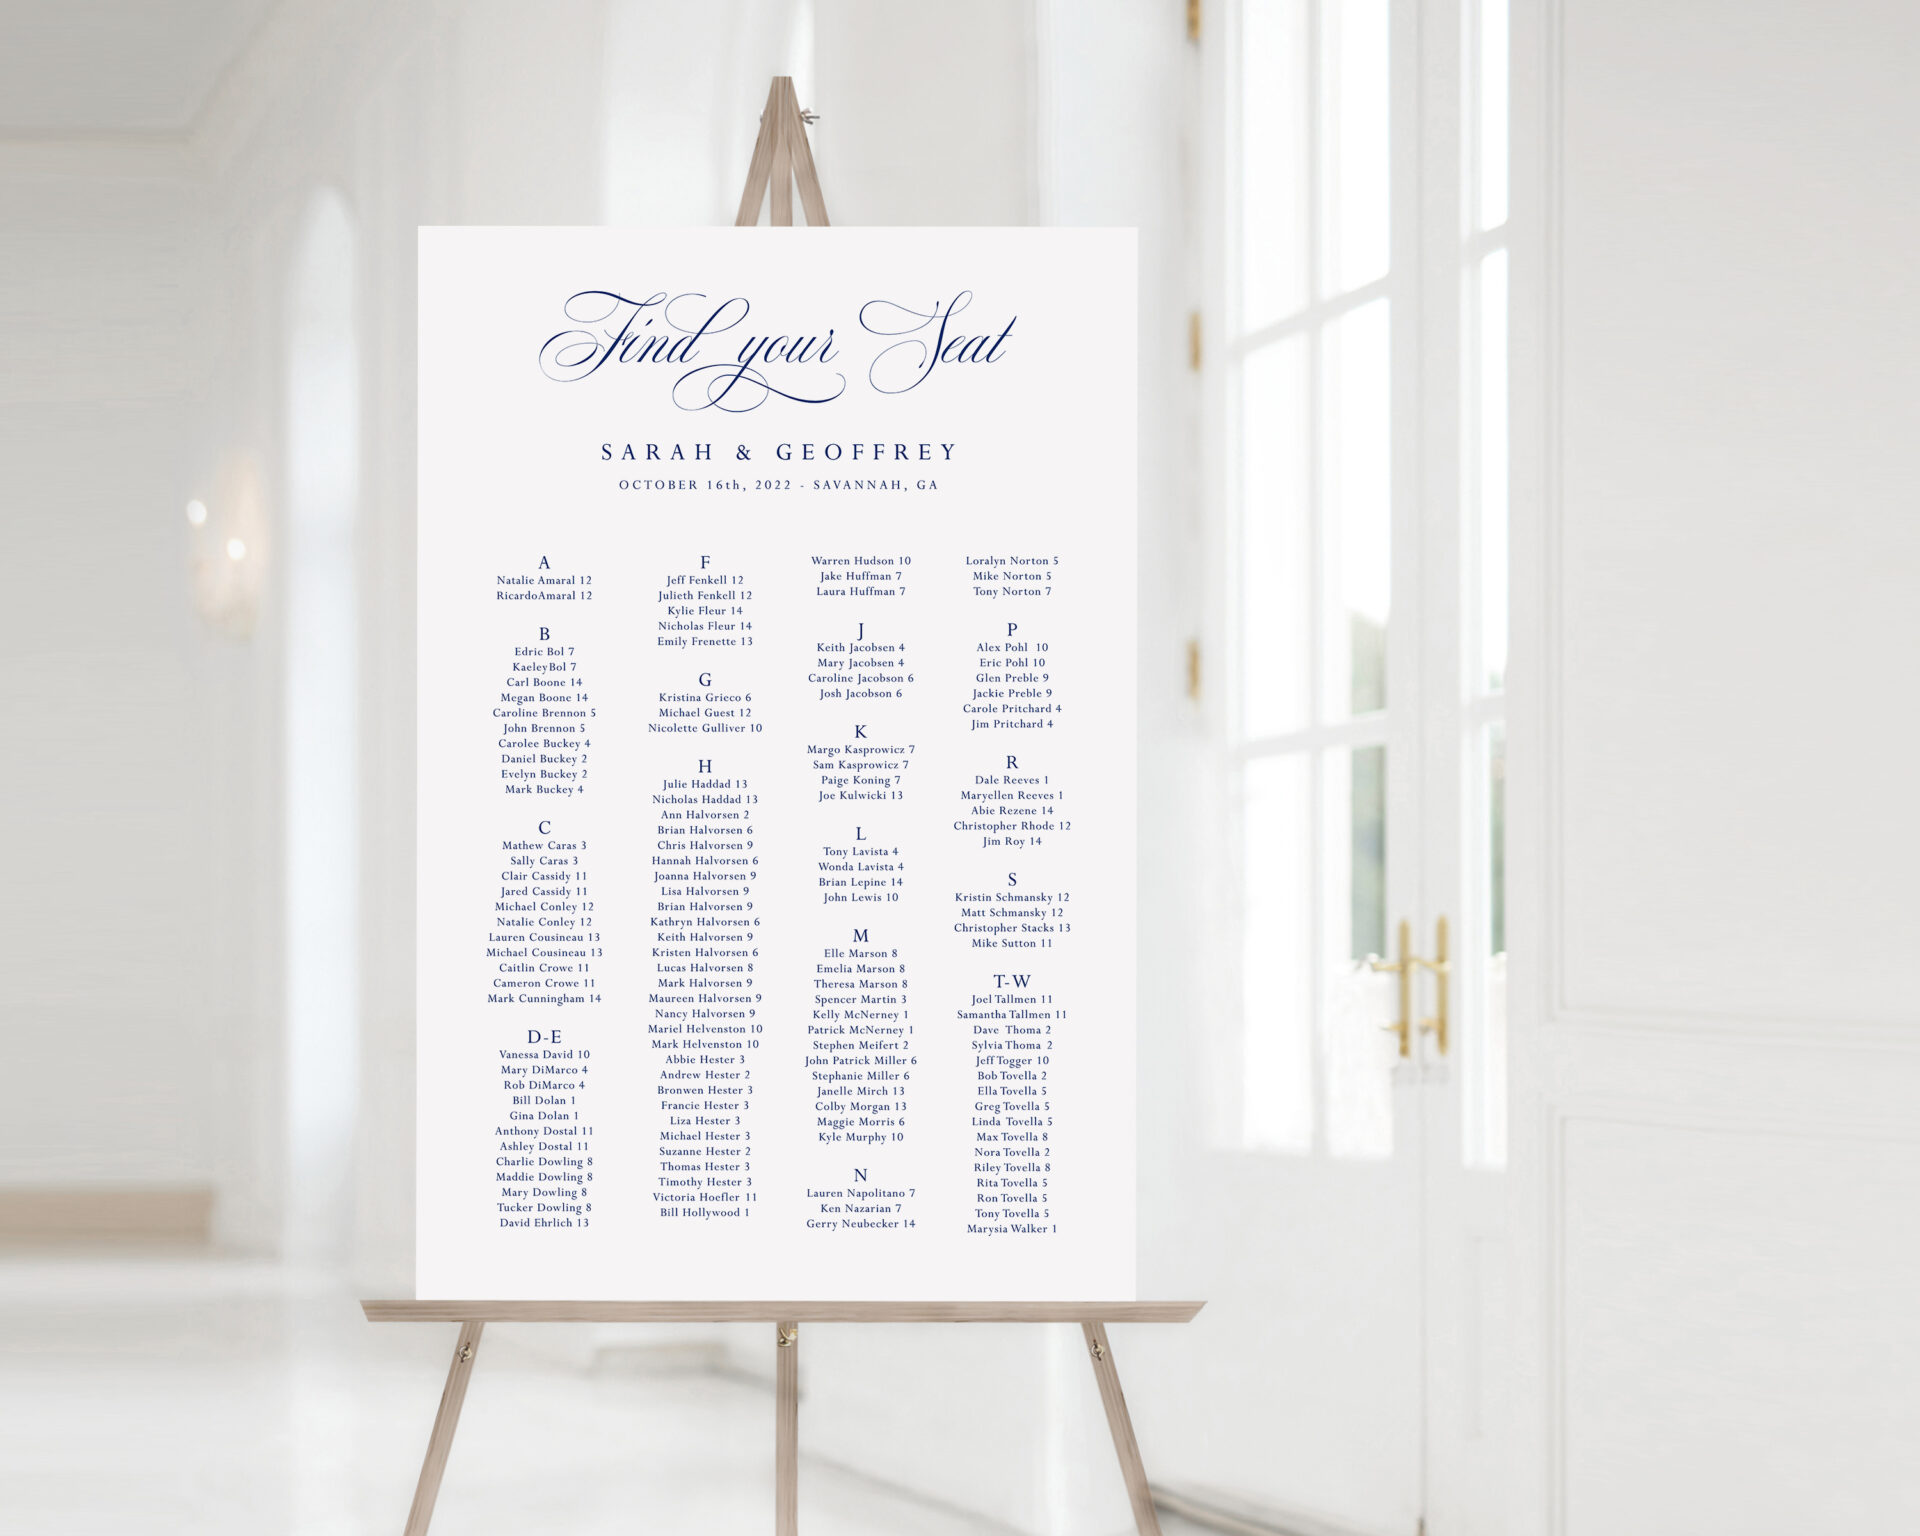 Find your Seat
SARAH & GEOFFREY
OCTOBER 16th, 2022 - SAVANNAH, GA
A
Natalie Amaral 12
RicardoAmaral 12
B
Edric Bol 7
KaeleyBol 7
Carl Boone 14
Megan Boone 14
Caroline Brennon 5
John Brennon 5
Carolee Buckey 4
Daniel Buckey 2
Evelyn Buckey 2
Mark Buckey 4
C
Mathew Caras 3
Sally Caras 3
Clair Cassidy 11
Jared Cassidy 11
Michael Conley 12
Natalie Conley 12
Lauren Cousineau 13
Michael Cousineau 13
Caitlin Crowe 11
Cameron Crowe 11
Mark Cunningham 14
D-E
Vanessa David 10
Mary DiMarco 4
Rob DiMarco 4
Bill Dolan 1
Gina Dolan 1
Anthony Dostal 11
Ashley Dostal 11
Charlie Dowling 8
Maddie Dowling 8
Mary Dowling 8
Tucker Dowling 8
David Ehrlich 13
F
Jeff Fenkell 12
Julieth Fenkell 12
Kylie Fleur 14
Nicholas Fleur 14
Emily Frenette 13
G
Kristina Grieco 6
Michael Guest 12
Nicolette Gulliver 10
H
Julie Haddad 13
Nicholas Haddad 13
Ann Halvorsen 2
Brian Halvorsen 6
Chris Halvorsen 9
Hannah Halvorsen 6
Joanna Halvorsen 9
Lisa Halvorsen 9
Brian Halvorsen 9
Kathryn Halvorsen 6
Keith Halvorsen 9
Kristen Halvorsen 6
Lucas Halvorsen 8
Mark Halvorsen 9
Maureen Halvorsen 9
Nancy Halvorsen 9
Mariel Helvenston 10
Mark Helvenston 10
Abbie Hester 3
Andrew Hester 2
Bronwen Hester 3
Francie Hester 3
Liza Hester 3
Michael Hester 3
Suzanne Hester 2
Thomas Hester 3
Timothy Hester 3
Victoria Hoefler 11
Bill Hollywood 1
Warren Hudson 10
Jake Huffman 7
Laura Huffman 7
J
Keith Jacobsen 4
Mary Jacobsen 4
Caroline Jacobson 6
Josh Jacobson 6
K
Margo Kasprowicz 7
Sam Kasprowicz 7
Paige Koning 7
Joe Kulwicki 13
L
Tony Lavista 4
Wonda Lavista 4
Brian Lepine 14
John Lewis 10
M
Elle Marson 8
Emelia Marson 8
Theresa Marson 8
Spencer Martin 3
Kelly McNerney 1
Patrick McNerney 1
Stephen Meifert 2
John Patrick Miller 6
Stephanie Miller 6
Janelle Mirch 13
Colby Morgan 13
Maggie Morris 6
Kyle Murphy 10
N
Lauren Napolitano 7
Ken Nazarian 7
Gerry Neubecker 14
Loralyn Norton 5
Mike Norton 5
Tony Norton 7
P
Alex Pohl 10
Eric Pohl 10
Glen Preble 9
Jackie Preble 9
Carole Pritchard 4
Jim Pritchard 4
R
Dale Reeves 1
Maryellen Reeves 1
Abie Rezene 14
Christopher Rhode 12
Jim Roy 14
S
Kristin Schmansky 12
Matt Schmansky 12
Christopher Stacks 13
Mike Sutton 11
T-W
Joel Tallmen 11
Samantha Tallmen 11
Dave Thoma 2
Sylvia Thoma 2
Jeff Togger 10
Bob Tovella 2
Ella Tovella 5
Greg Tovella 5
Linda Tovella 5
Max Tovella 8
Nora Tovella 2
Riley Tovella 8
Rita Tovella 5
Ron Tovella 5
Tony Tovella 5
Marysia Walker 1